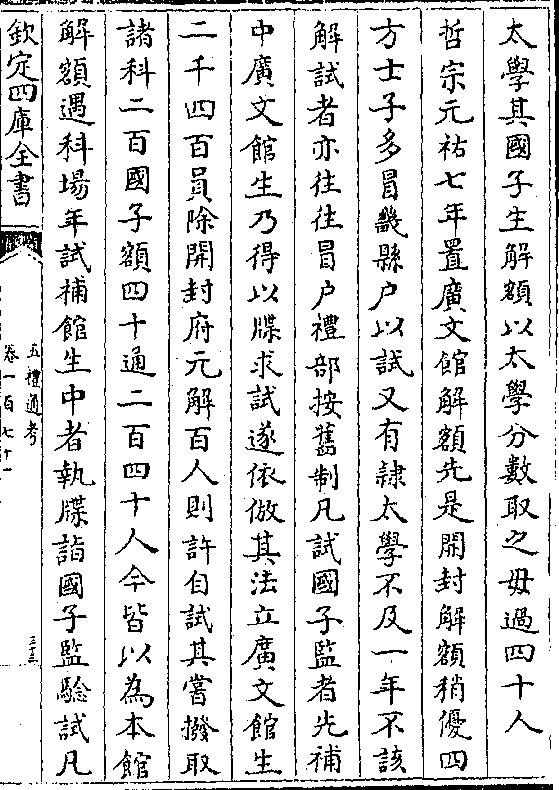 太學其國子生解額以太學分數取之毋過四十人
哲宗元祐七年置廣文館解額先是開封解額稍優四
方士子多冒畿縣户以試又有隷太學不及一年不該
解試者亦往往冒户禮部按舊制凡試國子監者先補
中廣文館生乃得以牒求試遂依倣其法立廣文館生
二千四百員除開封府元解百人則許自試其嘗撥取
諸科二百國子額四十通二百四十人今皆以為本館
解額遇科場年試補館生中者執牒詣國子監驗試凡
欽定四庫全書
五禮通考
卷一百七十一
三十三